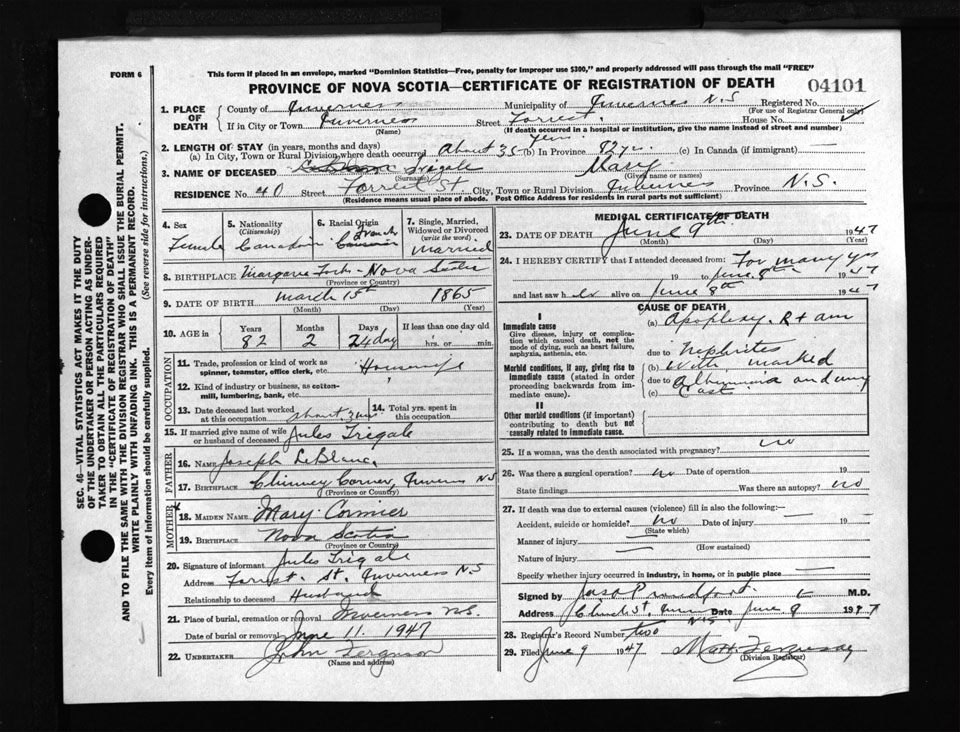 FORM 6
This form if placed in an envelope, marked "Dominion Statistics—Free, penalty for improper use $300," and properly addressed will pass through the mail "FREE"
PROVINCE OF NOVA SCOTIA—CERTIFICATE OF REGISTRATION OF DEATH
04101
1. PLACE OF DEATH
County of Inverness Municipality of Inverness N.S Registered No.
(For use of Registrar General only)
If in City or Town Inverness Street Forrest House No.
(Name) (If death occurred in a hospital or institution, give the name instead of street and number)
2. LENGTH OF STAY (in years, months and days)
(a) In City, Town or Rural Division where death occurred About 35 years (b) In Province 82 yrs. (c) In Canada (if immigrant) —
3. NAME OF DECEASED Trigale Mary
(Surname) (Given name or names)
RESIDENCE No. 40 Street Forrest St City, Town or Rural Division Inverness Province N.S.
(Residence means usual place of abode. Post Office Address for residents in rural parts not sufficient)
4. Sex
Female
5. Nationality
(Citizenship)
Canadian
6. Racial Origin
French
7. Single, Married, Widowed or Divorced
(write the word)
Married
8. BIRTHPLACE Margaree Forks Nova Scotia
(Province or Country)
9. DATE OF BIRTH March 15th 1865
(Month) (Day) (Year)
10. AGE in
Years Months Days If less than one day old
82 2 24 day hrs. or min.
OCCUPATION
11. Trade, profession or kind of work as spinner, teamster, office clerk, etc. Housewife
12. Kind of industry or business, as cotton-mill, lumbering, bank, etc.
13. Date deceased last worked at this occupation
14. Total yrs. spent in this occupation
15. If married give name of wife or husband of deceased Jules Trigale
FATHER
16. Name Joseph LeBlanc
17. BIRTHPLACE Chimney Corner, Inverness N S
(Province or Country)
MOTHER
18. MAIDEN NAME Mary Cormier
19. BIRTHPLACE Nova Scotia
(Province or Country)
20. Signature of informant Jules Trigale
Address Forrest St. Inverness N.S
Relationship to deceased Husband
21. Place of burial, cremation or removal Inverness N.S.
Date of burial or removal June 11. 1947
22. UNDERTAKER John Ferguson
(Name and address)
MEDICAL CERTIFICATE OF DEATH
23. DATE OF DEATH June 9th 1947
(Month) (Day) (Year)
24. I HEREBY CERTIFY that I attended deceased from: For many yrs
19 to June 8th 1947
and last saw her alive on June 8th 1947
CAUSE OF DEATH
I
Immediate cause
Give disease, injury or complication which caused death, not the mode of dying, such as heart failure, asphyxia, asthenia, etc.
(a) Apoplexy. Rt arm
due to Nephritis
Morbid conditions, if any, giving rise to immediate cause (stated in order proceeding backwards from immediate cause).
(b) With marked
due to
(c) Casts
II
Other morbid conditions (if important) contributing to death but not causally related to immediate cause.
25. If a woman, was the death associated with pregnancy? no
26. Was there a surgical operation? no Date of operation 19
State findings Was there an autopsy? no
27. If death was due to external causes (violence) fill in also the following:—
Accident, suicide or homicide? no Date of injury — 19
(State which)
Manner of injury
(How sustained)
Nature of injury
Specify whether injury occurred in industry, in home, or in public place
Signed by M.D.
Address Church St, Date June 9 1947
28. Registrar's Record Number two
29. Filed June 9 1947 Matt. Ferguson
(Division Registrar)
SEC. 46—VITAL STATISTICS ACT MAKES IT THE DUTY
OF THE UNDERTAKER OR PERSON ACTING AS UNDER-
TAKER TO OBTAIN ALL THE PARTICULARS REQUIRED
IN THE "CERTIFICATE OF REGISTRATION OF DEATH"
AND TO FILE THE SAME WITH THE DIVISION REGISTRAR WHO SHALL ISSUE THE BURIAL PERMIT.
WRITE PLAINLY WITH UNFADING INK. THIS IS A PERMANENT RECORD.
Every item of information should be carefully supplied. (See reverse side for instructions.)